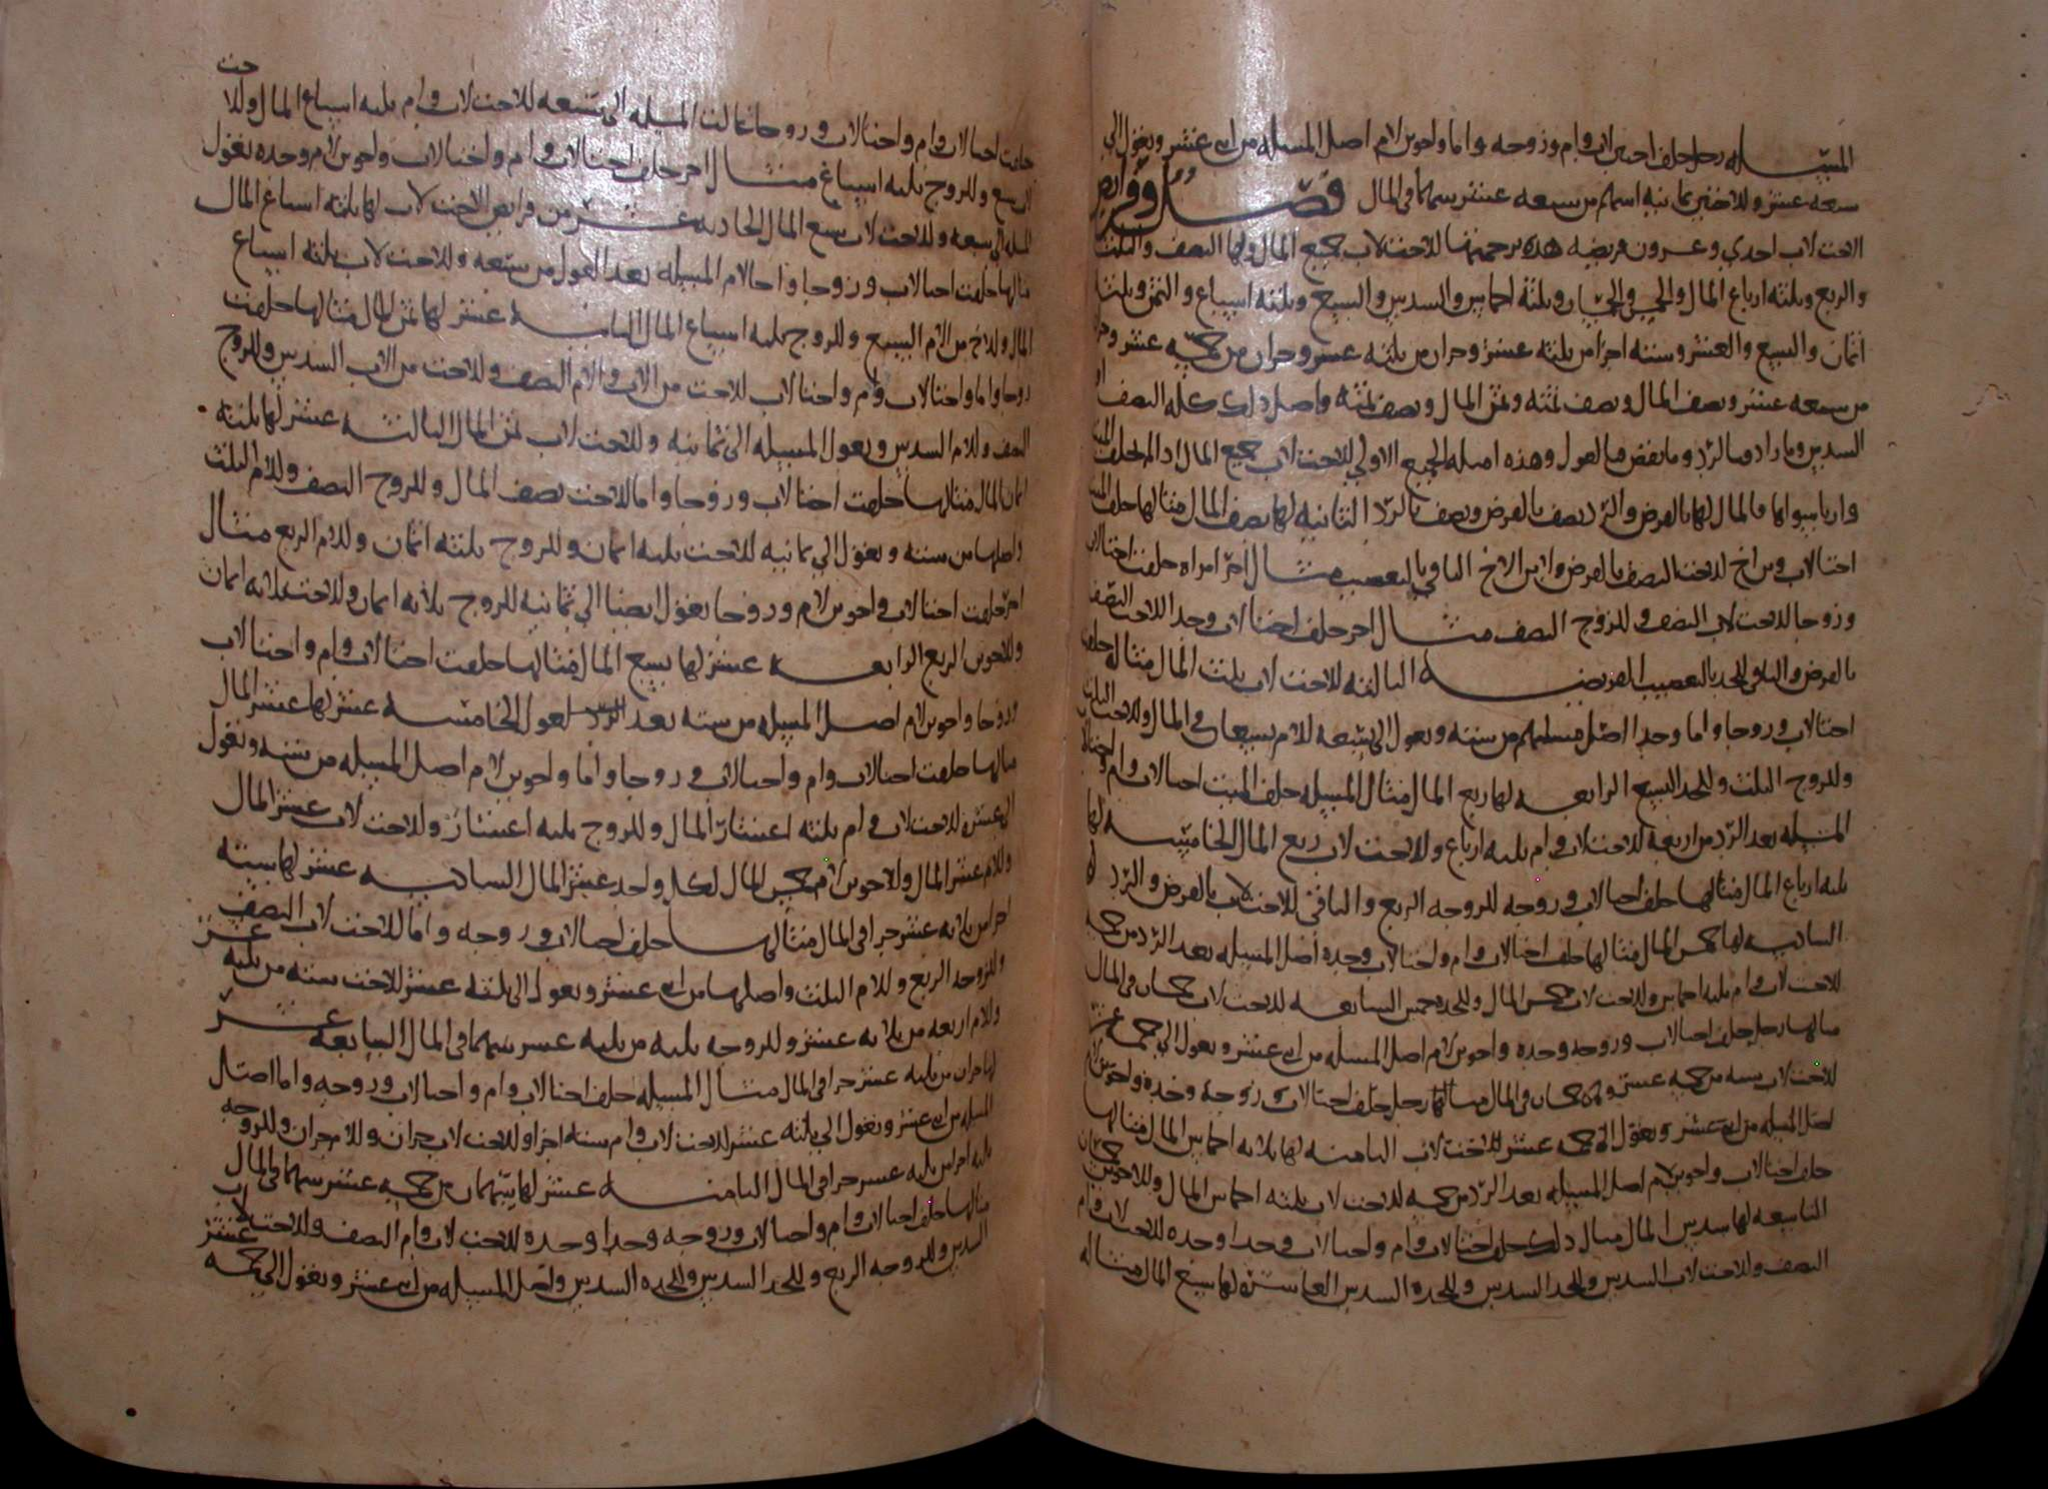 المسئله رجل خلف اختين لاب وام وزوجه واما واخوين لام اصل المسله من اثنى عشر ويعول الى
سبعه عشر وللاختين ثمانيه اسهم من سبعه عشر سهما فى المال فصل وفرايض
الاخت لاب احدي وعشرون فريضه هذه ترجمتها للاخت لاب جميع المال ولها النصف والثلث
والربع وثلثه ارباع المال والخمس والخمسان وثلثة اخماس والسدس والسبع وثلثه اسباع والثمن وثلثة
اثمان والتسع والعشر وسته اجزا من ثلثه عشر وجزان من ثلثه عشر وجزان من خمسه عشر
من سبعه عشر ونصف المال ونصف ثمنه وثمن المال ونصف ثمنه واصل ذلك كله النصف
السدس وما زاد فبالرد وما نقص فبالعول وهذه امثله الجميع الاولي للاخت لاب جميع المال اذا لم يخلف
وارثا سواها فالمال لها بالفرض والرد نصف بالفرض ونصف بالرد الثانيه لها نصف المال مثالها خلف الميت
اختا لاب وابن اخ للاخت النصف بالفرض ولابن الاخ الباقي بالتعصيب مثال اخر امراه خلفت اختا لاب
وزوجا للاخت لاب النصف وللزوج النصف مثال اخر خلف اختا لاب وجدا للاخت النصف
بالفرض والباقى للجد بالتعصيب الفريضه الثالثه للاخت لاب ثلث المال مثاله خلفت
اختا لاب وزوجا واما وجدا اصل مسلتهم من سته وتعول الى تسعه للام تسعان فى المال وللاخت الثلث
وللزوج الثلث وللجد التسع الرابعه لها ربع المال مثال المسله خلف الميت اختا لاب وام واختا لاب
المسله بعد الرد من اربعة للاخت لاب وام ثلثه ارباع وللاخت لاب ربع المال الخامسه لها
ثلثه ارباع المال مثالها خلف اختا لاب وزوجه للزوجه الربع والباقى للاخت لاب بالفرض والرد
السادسه لها خمس المال مثالها خلف اختا لاب وام واختا لاب وجده اصل المسله بعد الرد من خمسه
للاخت لاب وام ثلثه اخماس وللاخت لاب خمس المال وللجده خمس السابعه للاخت لاب خمسان فى المال
مثالها رجل خلف اختا لاب وزوجه وجده واخوين لام اصل المسله من اثنى عشر وتعول الى خمسه عشر
للاخت لاب سته من خمسه عشر وهى خمسان فى المال مثالها رجل خلف اختا لاب وزوجه وجده واخوين لام
اصل المسله من اثنى عشر وتعول الى خمسه عشر للاخت لاب الثامنه لها ثلاثه اخماس المال مثالها
خلف اختا لاب واخوين لام اصل المسله بعد الرد من خمسه للاخت لاب ثلثه اخماس المال وللاخوين خمسان
التاسعه لها سدس المال مثال ذلك خلف اختا لاب وام واختا لاب وجدا وجده للاخت لاب وام
النصف وللاخت لاب السدس وللجد السدس وللجده السدس العاشره لها سبع المال مثاله
خلفت اختا لاب وام واختا لاب وزوجا فعالت المسله الى سبعه للاخت لاب وام ثلثه اسباع المال وللاخت
السبع وللزوج ثلثه اسباع مثال اخر خلف اختا لاب وام واختا لاب واخوين لام وجده تعول
المسله الى سبعه وللاخت لاب سبع المال الحاديه عشر من فرايض الاخت لاب لها ثلثه اسباع المال
مثالها خلفت اختا لاب وزوجا واخا لام المسله بعد العول من سبعه وللاخت لاب ثلثه اسباع
المال وللاخ من الام السبع وللزوج ثلثه اسباع المال الثانيه عشر لها ثمن المال مثالها خلفت
زوجا واما واختا لاب وام واختا لاب للاخت من الاب والام النصف وللاخت من الاب السدس وللزوج
النصف وللام السدس وتعول المسله الى ثمانيه وللاخت لاب ثمن المال الثالثه عشر لها ثلثه
اثمان المال مثالها خلفت اختا لاب وزوجا واما للاخت نصف المال وللزوج النصف وللام الثلث
واصلها من سته وتعول الى ثمانيه للاخت ثلثه اثمان وللزوج ثلثه اثمان وللام الربع مثال
اخر خلفت اختا لاب واخوين لام وزوجا تعول ايضا الي ثمانيه للزوج ثلاثه اثمان وللاخت ثلاثه اثمان
وللاخوين الربع الرابعه عشر لها تسع المال مثالها خلفت اختا لاب وام واختا لاب
وزوجا واخوين لام اصل المسله من سته بعد العول الخامسه عشر لها عشر المال
مثالها خلفت اختا لاب وام واختا لاب وزوجا واما واخوين لام اصل المسله من سته وتعول
الى عشره للاخت لاب وام ثلثه اعشار المال وللزوج ثلثه اعشار وللاخت لاب عشر المال
وللام عشر المال وللاخوين لام خمس المال لكل واحد عشر المال السادسه عشر لها سته
اجزا من ثلاثه عشر جزا فى المال مثالها خلف اختا لاب وزوجه واما للاخت لاب النصف
وللزوجه الربع وللام الثلث واصلها من اثنى عشر وتعول الى ثلثه عشر للاخت سته من ثلثه عشر
وللام اربعه من ثلاثه عشر وللزوجه ثلثه من ثلثه عشر سهما فى المال السابعه عشر
لها جزان من ثلثه عشر جزا فى المال مثال المسله خلف اختا لاب وام واختا لاب وزوجه واما اصل
المسله من اثنى عشر وتعول الى ثلثه عشر للاخت لاب وام سته اجزا وللاخت لاب جزان وللام جزان وللزوجه
ثلثه اجزا من ثلثه عشر جزا فى المال الثامنه عشر لها سهمان من خمسه عشر سهما فى المال
مثالها خلف اختا لاب وام واختا لاب وزوجه وجدا وجده للاخت لاب وام النصف وللاخت لاب
السدس وللزوجه الربع وللجد السدس وللجده السدس واصل المسله من اثنى عشر وتعول الى خمسه عشر